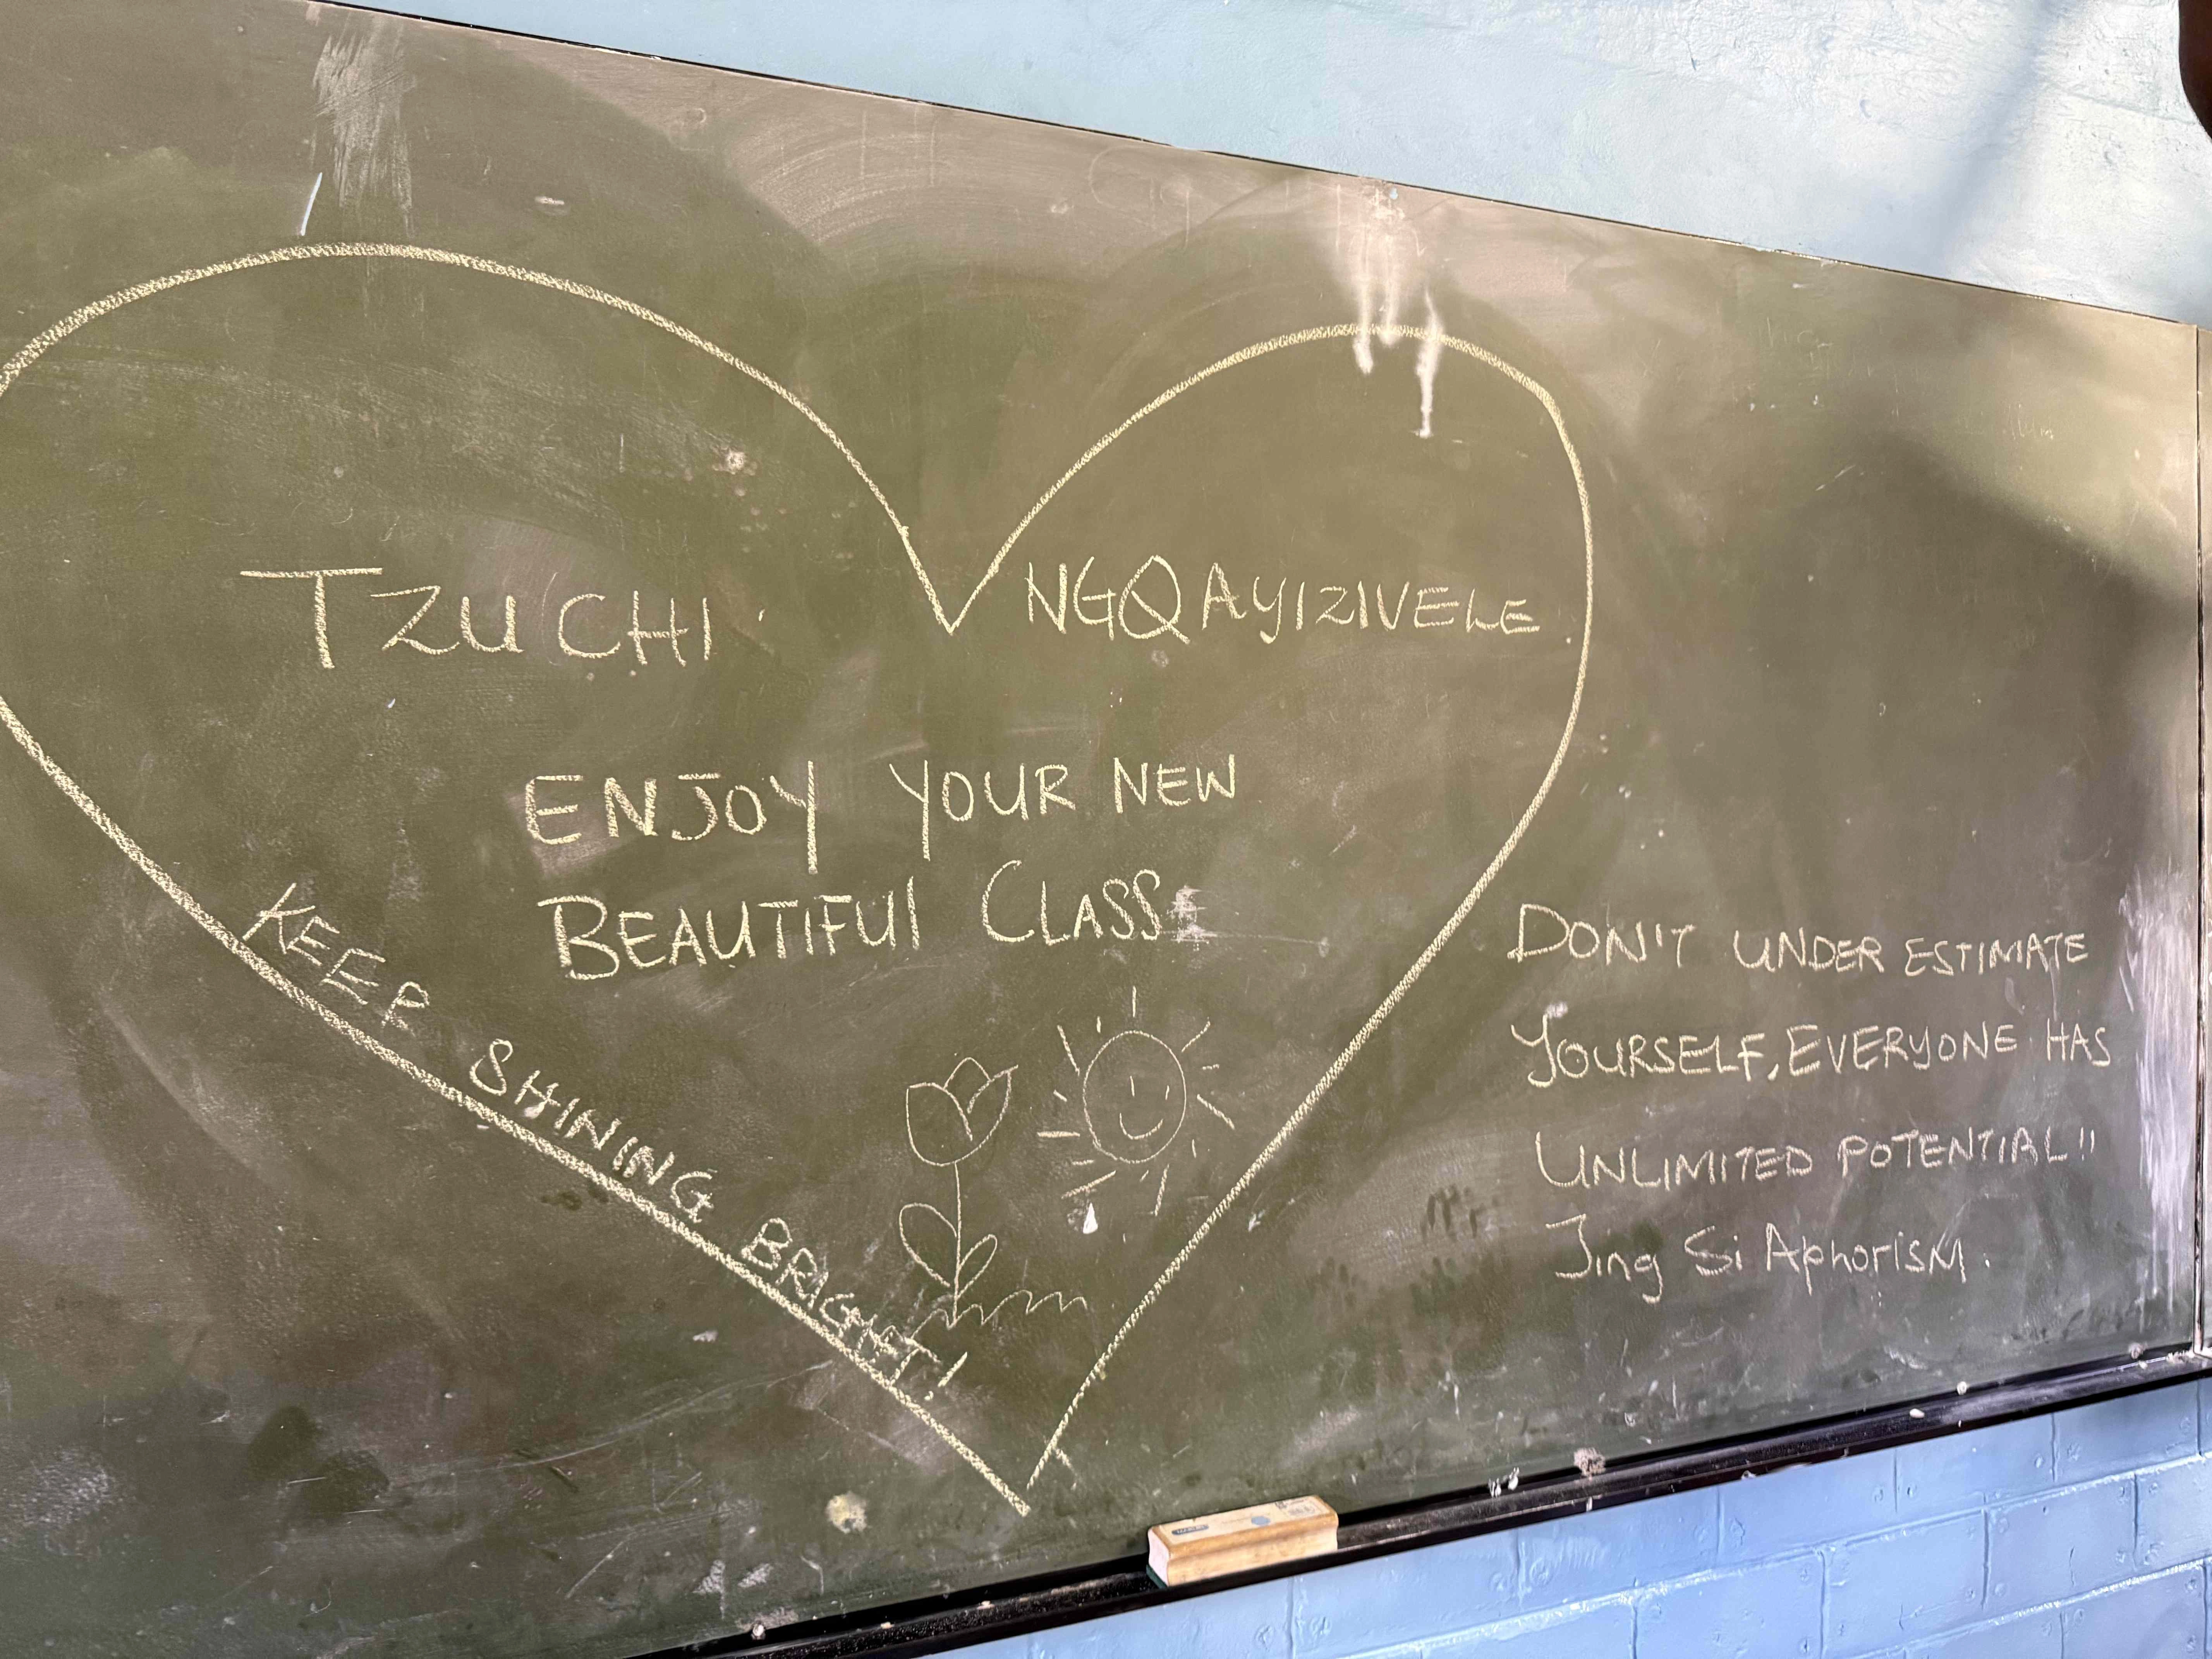 TZU CHI.
NGQAYIZIVELE
ENJOY YOUR NEW
BEAUTIFUL CLASS
KEEP SHINING BRIGHT!
DON'T UNDER ESTIMATE
YOURSELF, EVERYONE HAS
UNLIMITED POTENTIAL!!
Jing Si AphorisM.